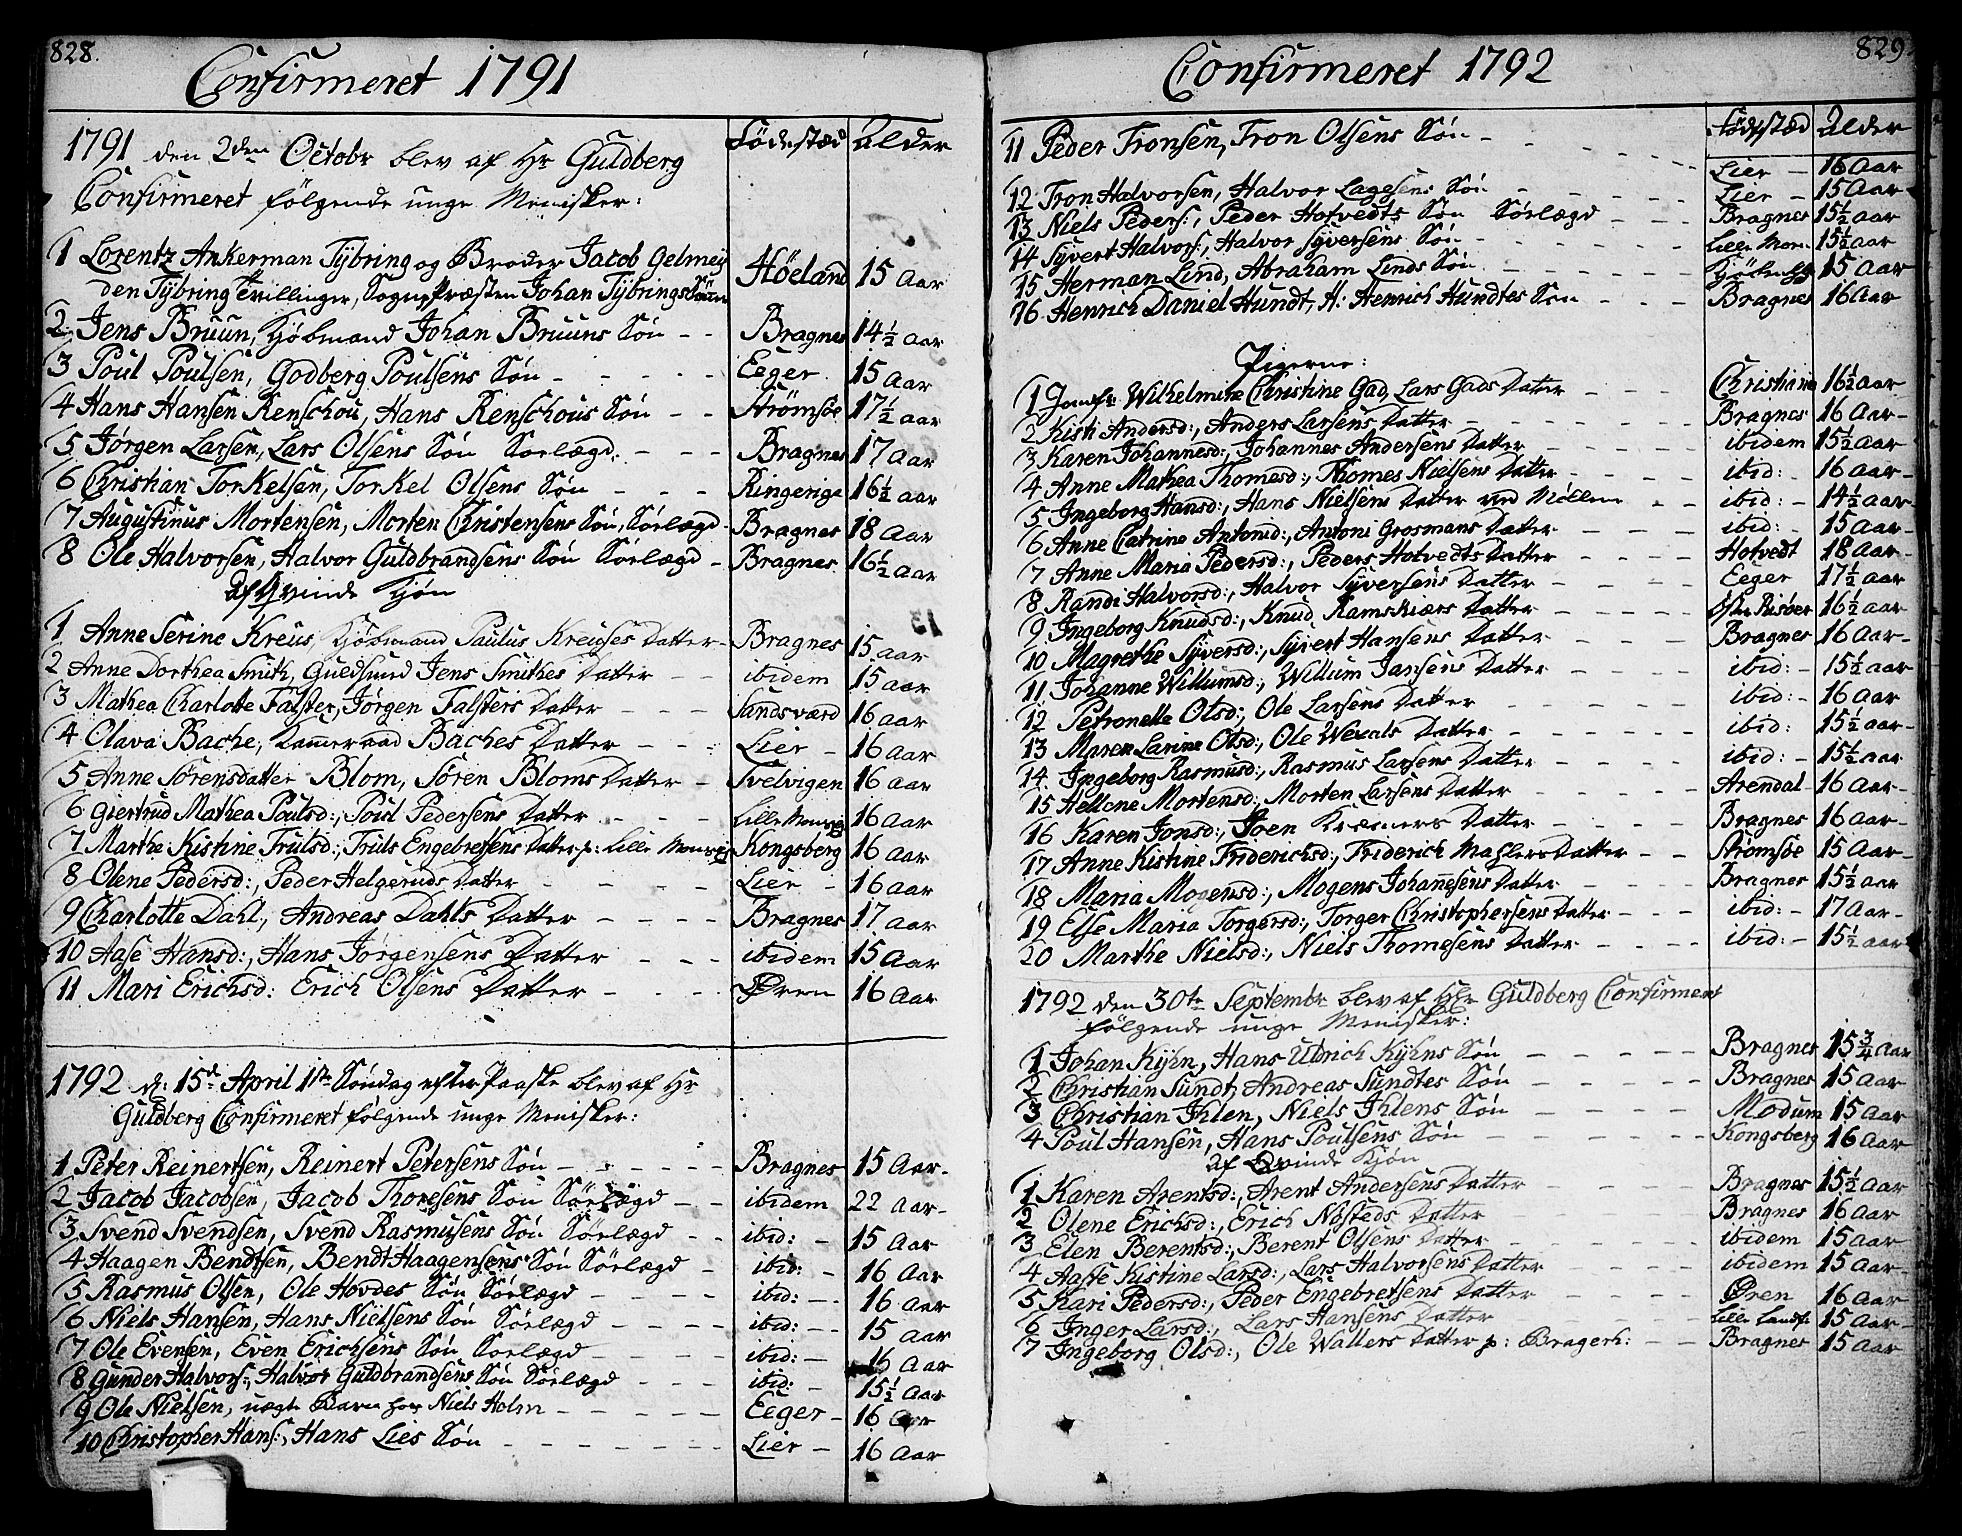 828.
Confirmeret 1791
Födestæd Alder
1791 den 2den Octobr blev af Hr Guldberg
Confirmeret følgende unge Menisker:
1 Lorentz Ankerman Tÿbring og Broder Jacob Gelmey
den Tÿbring Tvillinger, Sogne Præsten Johan Tÿbrings Sönn Höeland 15 Aar
2 Jens Bruun, Kjöbmand Johan Bruuns Sön - - Bragnes 14½ Aar
3 Poul Poulsen, Godberg Poulsens Sön - - - - - Eeger 15 Aar
4 Hans Hansen Renschou, Hans Renschous Sön - - Strömsöe 17½ Aar
5 Jørgen Larsen, Lars Olsens Sön Sorlægd. - - - Bragnes 17 Aar
6 Christian Torkelsen, Torkel Olsens Sön - - - Ringerige 16½ Aar
7 Augustinus Mortensen, Morten Christensens Sön, Sörlægd - Bragnes 18 Aar
8 Ole Halvorsen, Halvor Guldbrandsens Sön Sörlægd - Bragnes 16½ Aar
Af Qvinde Kjön
1 Anne Serine Kreus, Kjöbmand Paulus Kreuses Datter - Bragnes 15 aar
2 Anne Dorthea Smith, Guldsmed Jens Smithes Datter - - ibidem 15 aar
3 Mathea Charlotte Falster, Jörgen Falsters Datter - - - Sandsværd 16 aar
4 Olava Bache, Kammeraad Baches Datter - - - Lier - 16 Aar
5 Anne Sörensdatter Blom, Sören Bloms Datter - Svelvigen 16 Aar
6 Giertrud Mathea Poulsd:, Poul Pedersens Datter - - - Lille 16 Aar
7 Marthe Kistine Trulsd:, Truls Engebretsens Datter p: Lille Kongsberg 16 Aar
8 Olene Pedersd:, Peder Helgeruds Datter - - - - Lier - 16 Aar
9 Charlotte Dahl, Andreas Dahls Datter - - - - Bragnes 17 Aar
10 Aase Hansd:, Hans Jörgensens Datter - - - ibidem 15 Aar
11 Mari Erichsd: Erich Olsens Datter - - - - Øren 16 Aar
1792 d: 15de April 1ste Söndag efter Paaske blev af Hr
Guldberg Confirmeret følgende unge Menisker:
1 Peter Reinertsen, Reinert Petersens Sön - - - - - Bragnes 15 Aar
2 Jacob Jacobsen, Jacob Thoresens Sön Sörlægd - - ibidem 22 aar
3 Svend Svendsen, Svend Rasmusens Sön Sörlægd - - ibid: - 15 Aar
4 Haagen Bendtsen, Bendt Haagensens Sön Sörlægd - ibid: - 16 Aar
5 Rasmus Olsen, Ole Hovdes Sön Sörlægd - - - - ibid: - 16 Aar
6 Niels Hansen, Hans Nielsens Sön Sörlægd - - - - ibid: - 15 Aar
7 Ole Evensen, Even Erichsens Sön Sorlægd - - - - ibid: - 16 Aar
8 Gunder Halvors:, Halvor Guldbrandsens Sön Sörlægd - - - ibid: - 15½ Aar
9 Ole Nielsen, uægte Barn hos Niels Holm - - - - - Eeger - 16 Aar
10 Christopher Hans:, Hans Lies Sön - - - - - - Lier - 16 Aar
829.
Confirmeret 1792
Födestæd Alder
11 Peder Tronsen, Tron Olsens Sön - - - - - Lier - 16 Aar
12 Tron Halvorsen, Halvor Lagesens Sön - - - - - Lier - 15 Aar
13 Niels Peders:, Peder Hofvedts Sön Sörlægd - - - Bragnes 15½ aar
14 Syvert Halvors:, Halvor Syversens Sön - - - - - Lille 15½ aar
15 Herman Lind, Abraham Linds Sön - - - - - 15 Aar
16 Henrich Daniel Hundt, H: Henrich Hundtes Sön - - - Bragnes 16 Aar
Pigerne:
1 Jomfr: Wilhelmine Christine Gad, Lars Gads Datter - - - Christiania 16½ aar
2 Kisti Andersd:, Anders Larsens Datter - - - - - Bragnes 16 Aar
3 Karen Johannesd:, Johannes Andersens Datter - - - - ibidem 15½ Aar
4 Anne Mathea Thomesd:, Thomes Nielsens Datter - - - - ibid: 16 Aar
5 Ingeborg Hansd:, Hans Nielsens Datter ved Möllen - - ibid: - 14½ Aar
6 Anne Catrine Antonid:, Antoni Grosmans Datter - - - ibid: - 15 Aar
7 Anne Maria Pedersd:, Peders Hofvedts Datter - - - - Hofvedt 18 Aar
8 Randi Halvorsd:, Halvor Syversens Datter - - - - Eeger 17½ Aar
9 Ingeborg Knudsd:, Knud Ramskiærs Datter - - - - Öster Risöer 16½ Aar
10 Magrethe Syversd:, Syvert Hansens Datter - - - - Bragnes 16 Aar
11 Johanne Willumsd:, Willum Jansens Datter - - - - ibid: - 15½ Aar
12 Petronelle Olsd:, Ole Larsens Datter - - - - - ibid: - 16 Aar
13 Maren Larine Olsd:, Ole Wexals Datter - - - - - ibid: 15½ aar
14 Ingeborg Rasmusd:, Rasmus Larsens Datter - - - - ibid: - 15½ Aar
15 Hellene Mortensd:, Morten Larsens Datter - - - - - Arendal - 16 Aar
16 Karen Jonsd:, Joen Kræmers Datter - - - - - Bragnes 16 Aar
17 Anne Kistine Friderichsd:, Friderich Mahlers Datter - - Strömsöe 15 Aar
18 Maria Mogensd:, Mogens Johanesens Datter - - - - Bragnes 15½ aar
19 Else Maria Torgersd:, Torger Christophersens Datter - - - ibid: - 17 Aar
20 Marthe Nielsd:, Niels Thomesens Datter - - - - ibid: - 15½ aar
1792 den 30te Septembr blev af Hr Guldberg Confirmert
følgende unge Menisker:
1 Johan Kÿhn, Hans Ulrich Kÿhns Sön - - - - - Bragnes 15¾ Aar
2 Christian Sundt, Andreas Sundtes Sön - - - - - Bragnes 15 Aar
3 Christian Ihlen, Niels Ihlens Sön - - - - - Modum 15 Aar
4 Poul Hansen, Hans Poulsens Sön - - - - - Kongsberg 16 Aar
Af Qvinde Kjön
1 Karen Arentsd:, Arent Andersens Datter - - - - Bragnes 15½ Aar
2 Olene Erichsd:, Erich Nösteds Datter - - - - - Bragnes 16 Aar
3 Elen Berentsd:, Berent Olsens Datter - - - - - ibidem 15 Aar
4 Aasse Kistine Larsd:, Lars Halvorsens Datter - - - - ibidem 15 Aar
5 Kari Pedersd:, Peder Engebretsens Datter - - - - Øren 16 Aar
6 Inger Larsd:, Lars Hansens Datter - - - - - Lille 15 Aar
7 Ingeborg Olsd:, Ole Wallers Datter p: Bragerh: - - Bragnes 15 Aar